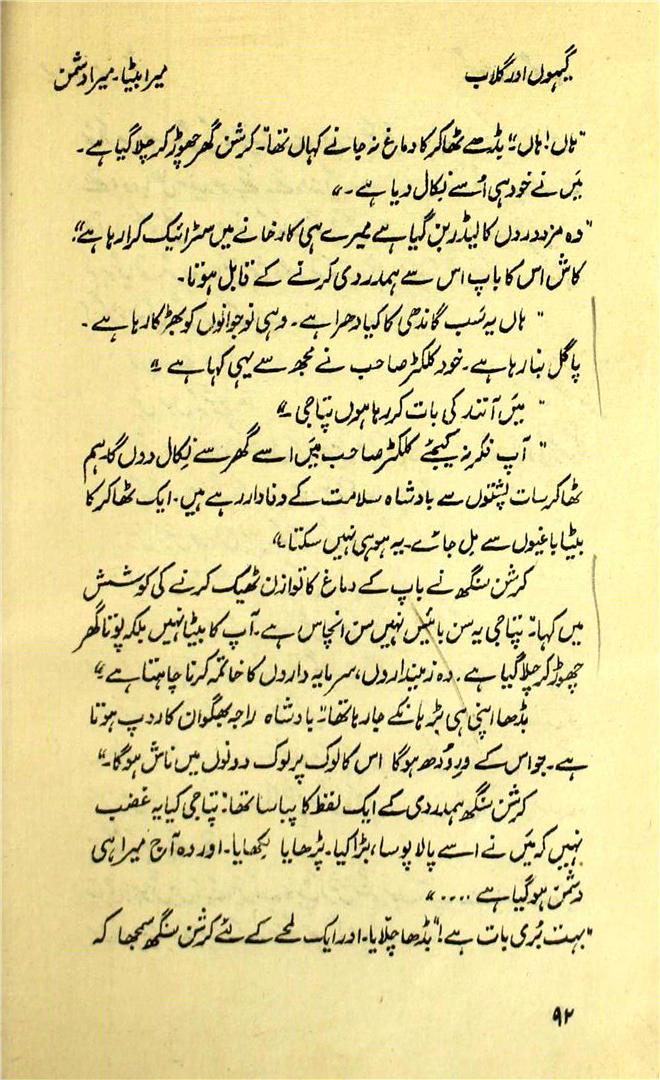 گیہوں اور گلاب
میرا بیٹا۔ میرا دشمن
"ہاں! ہاں" بڈھے ٹھاکر کا دماغ نہ جانے کہاں تھا۔ کرشن گھر چھوڑ کر چلا گیا ہے۔
میں نے خود ہی اُسے نکال دیا ہے۔"
"وہ مزدوروں کا لیڈر بن گیا ہے میرے ہی کارخانے میں سٹرائیک کرا رہا ہے"۔
کاش اس کا باپ اس سے ہمدردی کرنے کے قابل ہوتا۔
"ہاں یہ سَب گاندھی کا کیا دھرا ہے۔ وہی نوجوانوں کو بھڑکا رہا ہے۔
پاگل بنا رہا ہے۔ خود کلکٹر صاحب نے مجھ سے یہی کہا ہے"
"میں آنند کی بات کر رہا ہوں پتاجی"
"آپ فکر نہ کیجئے کلکٹر صاحب میں اسے گھر سے نکال دوں گا۔ ہم
ٹھاکر سات پشتوں سے بادشاہ سلامت کے وفادار رہے ہیں۔ ایک ٹھاکر کا
بیٹا باغیوں سے مل جائے۔ یہ ہو ہی نہیں سکتا۔"
کرشن سنگھ نے باپ کے دماغ کا توازن ٹھیک کرنے کی کوشش
میں کہا۔ "پتاجی یہ سن بائیس نہیں سن انچاس ہے۔ آپ کا بیٹا نہیں بلکہ پوتا گھر
چھوڑ کر چلا گیا ہے۔ وہ زمینداروں، سرمایہ داروں کا خاتمہ کرنا چاہتا ہے"
بڈھا اپنی ہی بڑ ہانکے جا رہا تھا۔ "بادشاہ راجہ بھگوان کا روپ ہوتا
ہے۔ جو اس کے وِرودھ ہوگا اس کا لوک پرلوک دونوں میں ناش ہوگا۔"
کرشن سنگھ ہمدردی کے ایک لفظ کا پیاسا تھا۔ "پتاجی کیا یہ غضب
نہیں کہ میں نے اسے پالا پوسا، بڑا کیا۔ پڑھایا لکھایا۔ اور وہ آج میرا ہی
دشمن ہو گیا ہے ...."
"بہت بُری بات ہے!" بڈھا چلّایا۔ اور ایک لمحے کے لئے کرشن سنگھ سمجھا کہ
۹۲